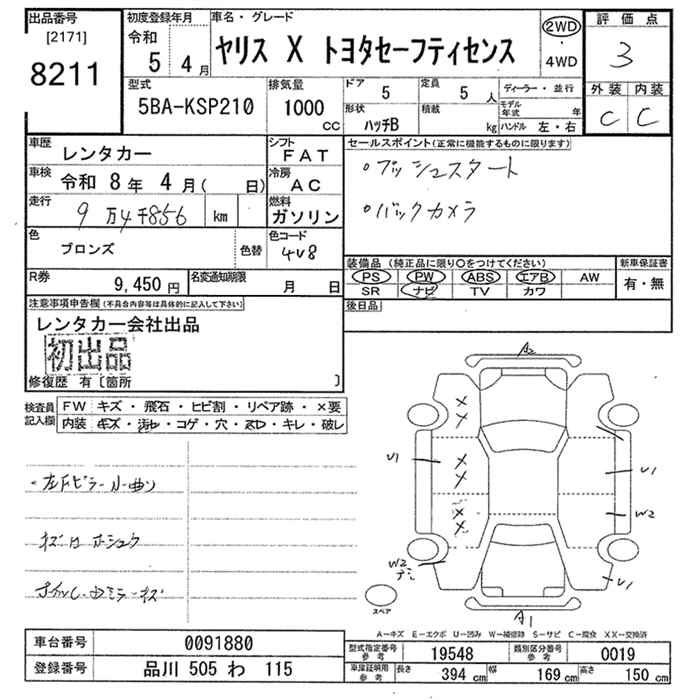 出品番号
[2171]
8211
初度登録年月
令和
5 4月
車名・グレード
ヤリス X トヨタセーフティセンス
2WD
・
4WD
評価点
3
外装 内装
C C
型式
5BA-KSP210
排気量
1000
CC
ドア 5
定員 5 人
形状 ハッチB
積載 kg
ディーラー・並行
モデル年式 年
ハンドル 左・右
車歴
レンタカー
シフト
FAT
車検
令和 8年 4月( 日)
冷房
AC
走行
9万4千856 km
燃料
ガソリン
色
ブロンズ
色替
色コード
4V8
R券
9,450円
名変通知期限
月 日
セールスポイント(正常に機能するものに限ります)
○プッシュスタート
○バックカメラ
装備品(純正品に限り○をつけてください)
PS PW ABS エアB AW
SR ナビ TV カワ
新車保証書
有・無
後日品
注意事項申告欄(不具合内容等は具体的に記入して下さい)
レンタカー会社出品
初出品
修復歴 有〔箇所 〕
検査員
記入欄
FW キズ・飛石・ヒビ割・リペア跡・×要
内装 キズ・汚れ・コゲ・穴・ヌレ・キレ・破レ
・左Fピラー小曲り
キズ有 ホシュウ
A2
U1
U1
W2
W2
U1
A1
スペア
A-キズ E-エクボ U-凹み W-補修跡 S-サビ C-腐食 XX-交換済
車台番号 0091880
登録番号 品川 505 わ 115
型式指定番号 参考 19548
類別区分番号 参考 0019
車庫証明用 参考 長さ 394 cm 幅 169 cm 高さ 150 cm